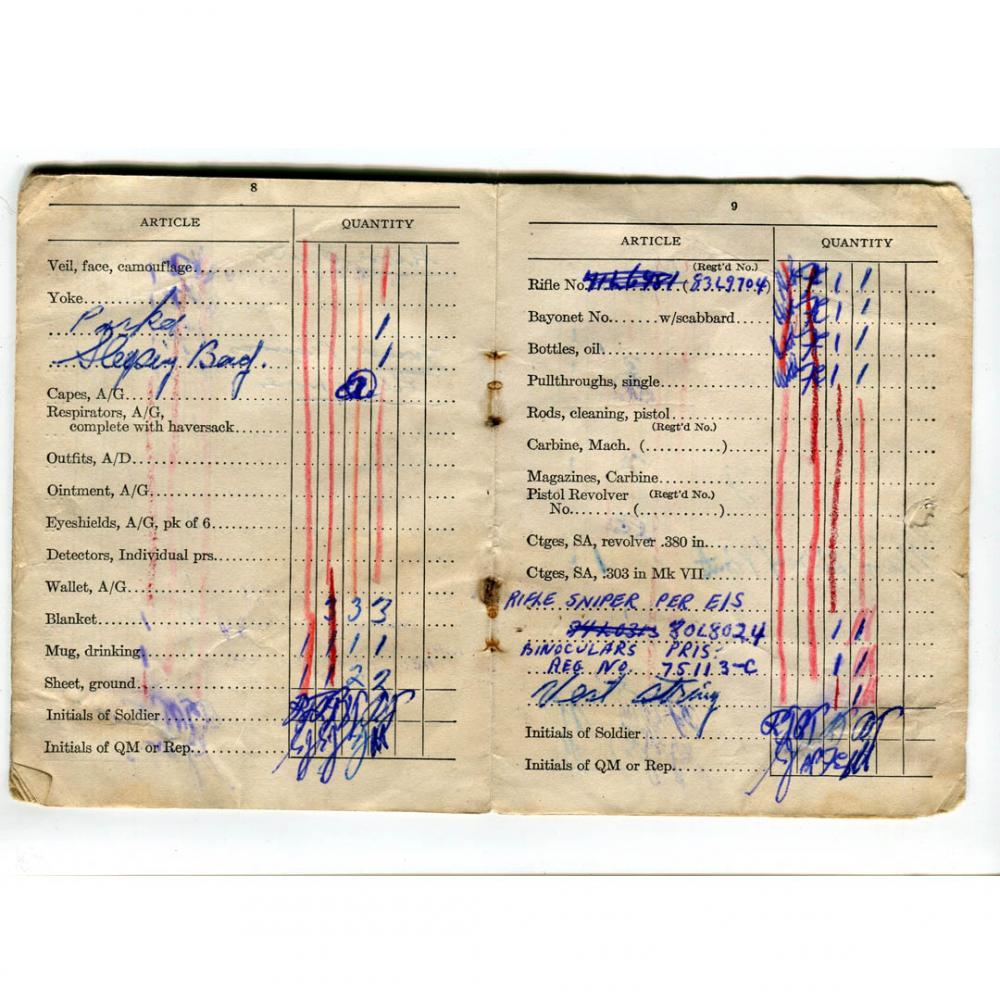 8
ARTICLE QUANTITY
Veil, face, camouflage
Yoke
Parka 1
Sleeping Bag. 1
Capes, A/G
Respirators, A/G,
complete with haversack
Outfits, A/D
Ointment, A/G
Eyeshields, A/G, pk of 6
Detectors, Individual prs
Wallet, A/G
Blanket 3 3 3
Mug, drinking 1 1 1 1
Sheet, ground 1 1 2 2
Initials of Soldier
Initials of QM or Rep
9
ARTICLE QUANTITY
(Regt'd No.)
Rifle No. (83L9704) 1 1
Bayonet No. w/scabbard 1 1
Bottles, oil 1 1
Pullthroughs, single 1 1
Rods, cleaning, pistol
(Regt'd No.)
Carbine, Mach. ( )
Magazines, Carbine
Pistol Revolver (Regt'd No.)
No. ( )
Ctges, SA, revolver .380 in
Ctges, SA, .303 in Mk VII
RIFLE SNIPER PER EIS
80L8024 1 1
BINOCULARS PRIS
REG NO. 75113-C 1 1
Vest string 1
Initials of Soldier
Initials of QM or Rep